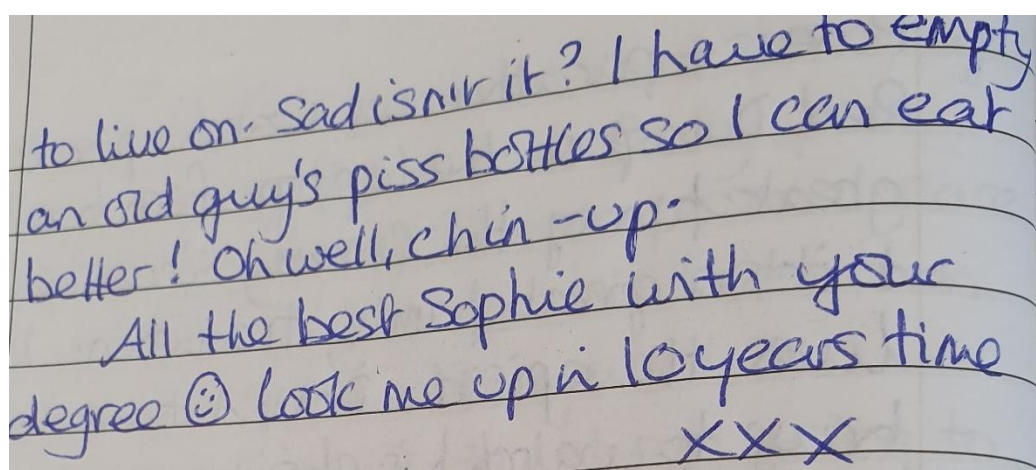 to live on. Sad isn't it? I have to empty
an old guy's piss bottles so I can eat
better! Oh well, chin-up.
All the best Sophie with your
degree ☺ Look me up in 10 years time
xxx